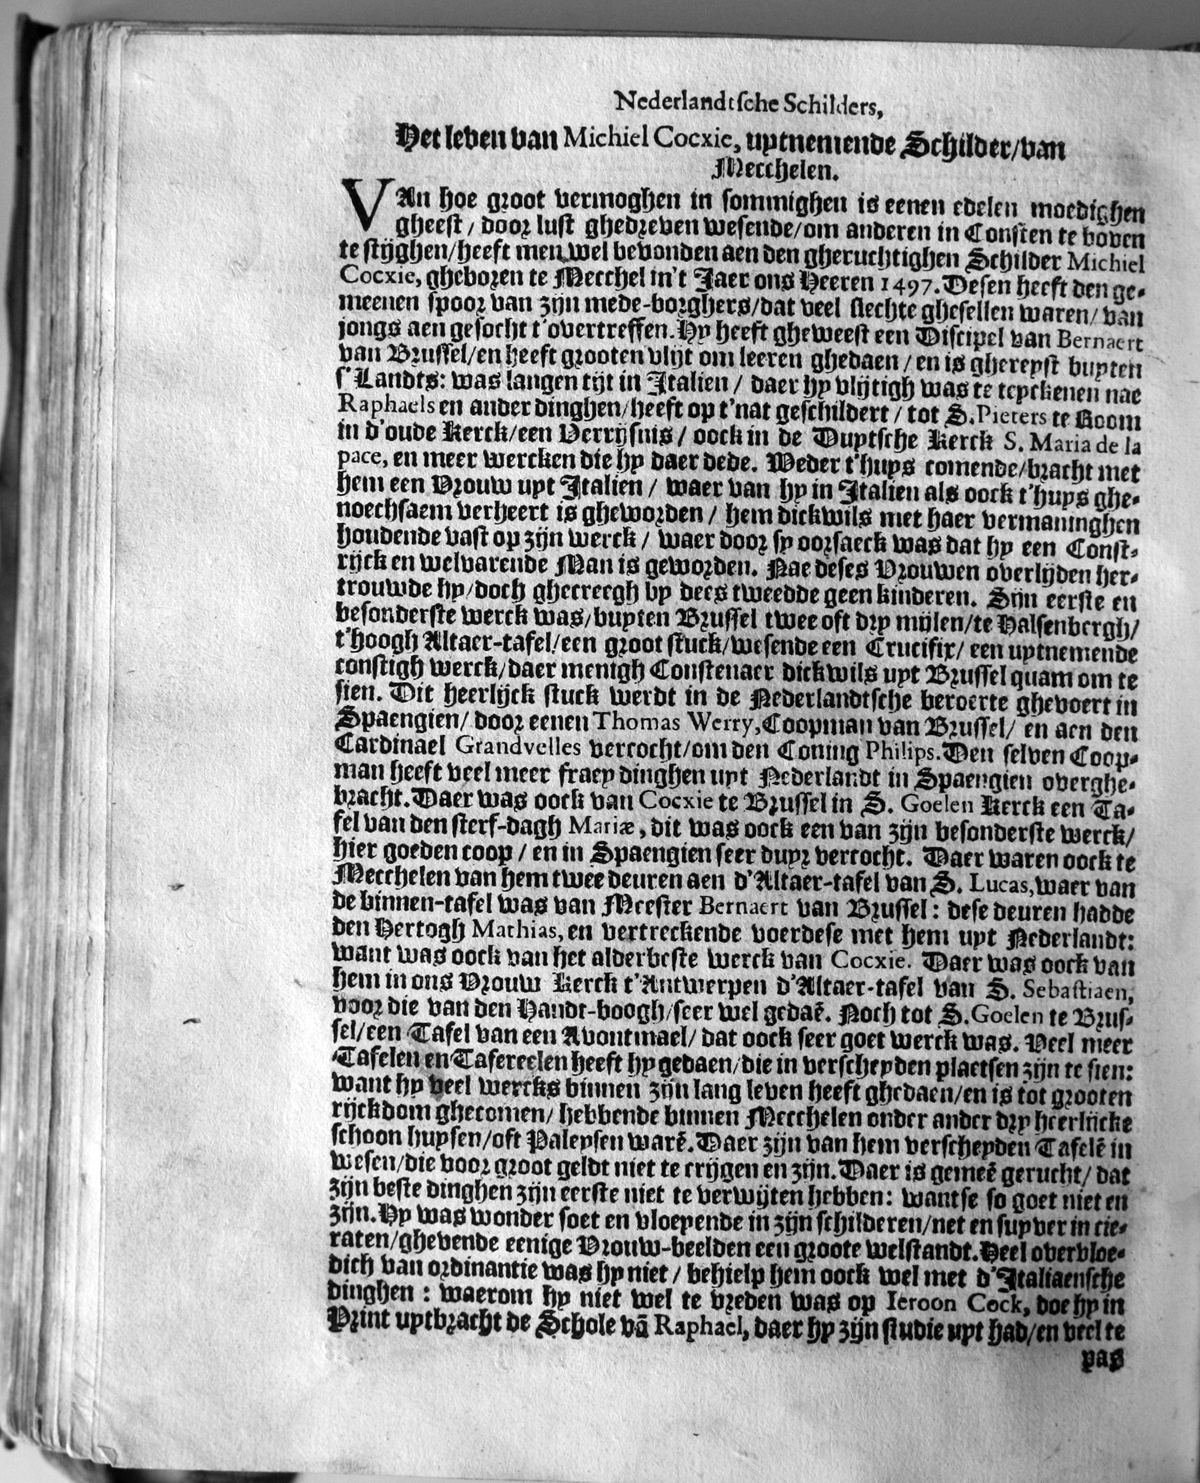 Nederlandtsche Schilders,
Het leven van Michiel Cocxie, uytnemende Schilder/van
Mecchelen.
VAn hoe groot vermoghen in sommighen is eenen edelen moedighen
gheest / door lust ghedreven wesende/om anderen in Consten te boven
te stijghen/heeft men wel bevonden aen den gheruchtighen Schilder Michiel
Cocxie, gheboren te Mecchel in't Jaer ons Heeren 1497. Desen heeft den ge-
meenen spoor van zijn mede-borghers/dat veel slechte ghesellen waren/ van
jongs aen gesocht t'overtreffen. Hy heeft gheweest een Discipel van Bernaert
van Brussel/en heeft grooten vlijt om leeren ghedaen / en is ghereyst buyten
s'Landts: was langen tijt in Italien / daer hy vlijtigh was te teyckenen nae
Raphaels en ander dinghen/heeft op t'nat geschildert / tot S. Pieters te Room
in d'oude Kerck/een Verrijsnis / oock in de Duytsche Kerck S. Maria de la
pace, en meer wercken die hy daer dede. Weder t'huys comende/bracht met
hem een Vrouw uyt Italien / waer van hy in Italien als oock t'huys ghe-
noechsaem verheert is gheworden / hem dickwils met haer vermaninghen
houdende vast op zijn werck / waer door sy oorsaeck was dat hy een Const-
rijck en welvarende Man is geworden. Nae deses Vrouwen overlijden her-
trouwde hy/doch ghecreegh by dees tweedde geen kinderen. Sijn eerste en
besonderste werck was/buyten Brussel twee oft dry mijlen/te Halsenbergh/
t'hoogh Altaer-tafel/een groot stuck/wesende een Crucifix/ een uytnemende
constigh werck/daer menigh Constenaer dickwils uyt Brussel quam om te
sien. Dit heerlijck stuck werdt in de Nederlandtsche beroerte ghevoert in
Spaengien/ door eenen Thomas Werry, Coopman van Brussel/ en aen den
Cardinael Grandvelles vercocht/om den Coning Philips. Den selven Coop-
man heeft veel meer fraey dinghen uyt Nederlandt in Spaengien overghe-
bracht. Daer was oock van Cocxie te Brussel in S. Goelen Kerck een Ta-
fel van den sterf-dagh Mariæ, dit was oock een van zijn besonderste werck/
hier goeden coop / en in Spaengien seer duyr vercocht. Daer waren oock te
Mecchelen van hem twee deuren aen d'Altaer-tafel van S. Lucas, waer van
de binnen-tafel was van Meester Bernaert van Brussel: dese deuren hadde
den Hertogh Mathias, en vertreckende voerdese met hem uyt Nederlandt:
want was oock van het alderbeste werck van Cocxie. Daer was oock van
hem in ons Vrouw Kerck t'Antwerpen d'Altaer-tafel van S. Sebastiaen,
voor die van den Handt-boogh/seer wel gedaē. Noch tot S. Goelen te Brus-
sel/een Tafel van een Avontmael/ dat oock seer goet werck was. Veel meer
Tafelen en Tafereelen heeft hy gedaen/die in verscheyden plaetsen zijn te sien:
want hy veel wercks binnen zijn lang leven heeft ghedaen/en is tot grooten
rijckdom ghecomen/ hebbende binnen Mecchelen onder ander dry heerlijcke
schoon huysen/oft Paleysen warē. Daer zijn van hem verscheyden Tafelē in
wesen/die voor groot geldt niet te crijgen en zijn. Daer is gemeē gerucht/ dat
zijn beste dinghen zijn eerste niet te verwijten hebben: wantse so goet niet en
zijn. Hy was wonder soet en vloeyende in zijn schilderen/net en suyver in cie-
raten/ghevende eenige Vrouw-beelden een groote welstandt. Veel overvloe-
dich van ordinantie was hy niet / behielp hem oock wel met d'Italiaensche
dinghen : waerom hy niet wel te vreden was op Ieroon Cock, doe hy in
Print uytbracht de Schole vā Raphael, daer hy zijn studie uyt had/en veel te
pas